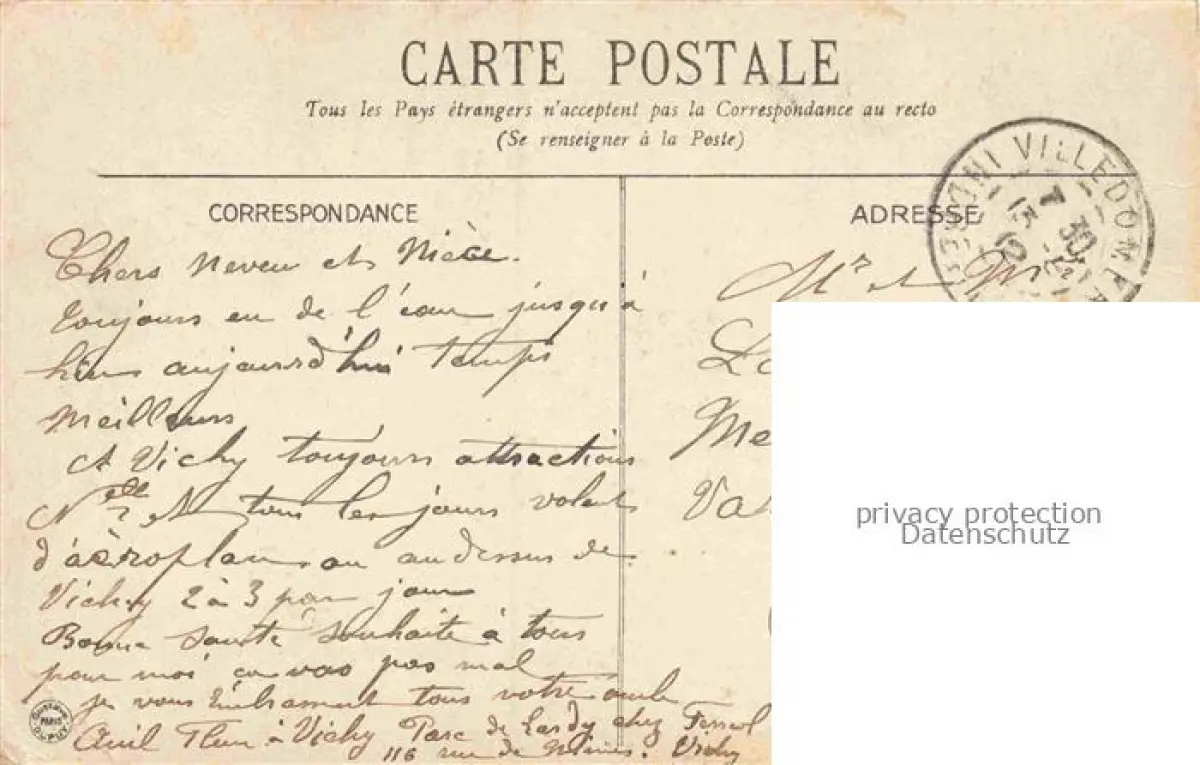 CARTE POSTALE
Tous les Pays étrangers n'acceptent pas la Correspondance au recto
(Se renseigner à la Poste)
CORRESPONDANCE
ADRESSE
VILLEDOM
INDRE
7 30
Chers Neveu et Nièce.
Toujours eu de l'eau jusqu'à
hier aujourd'hui temps
Meilleurs
A Vichy toujours attractions
Nelle et tous les jours volent
d'aéroplans au dessus de
Vichy 2 à 3 par jour
Bonne santé souhaite à tous
pour moi ca vas pas mal
je vous tous votre oncle
à Vichy Parc de Lardy chez
116 rue de Vichy
Mr et M
Me
Va
privacy protection
Datenschutz
PARIS